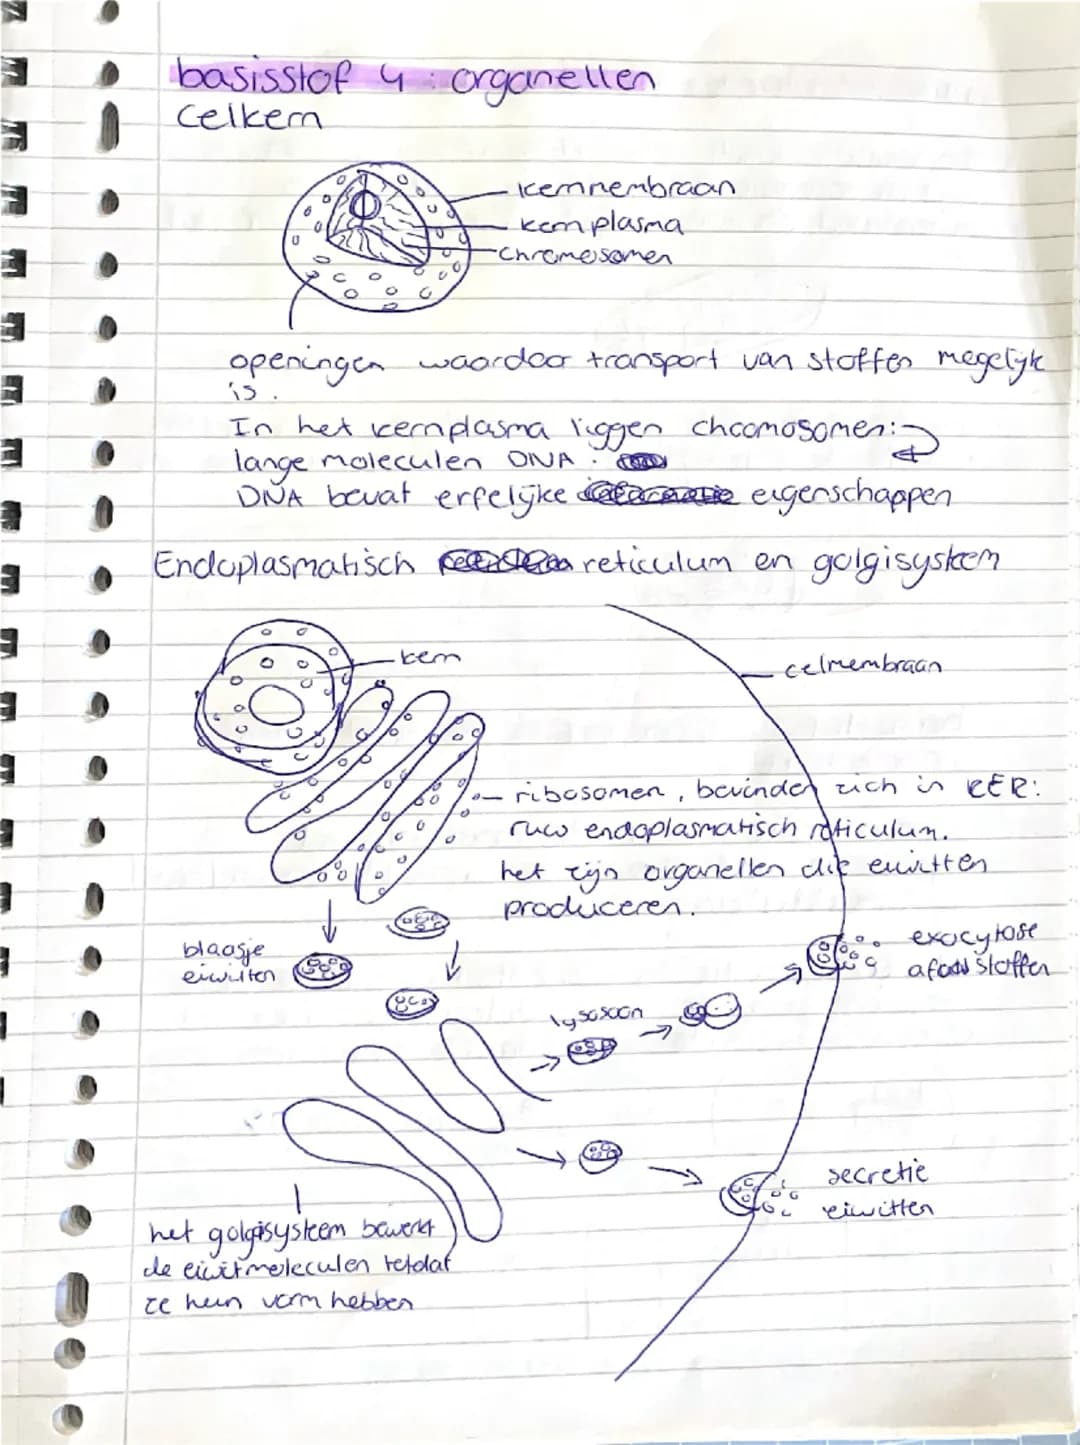 basisstof 4: organellen
Celkern
kernmembraan
kernplasma
chromosomen
openingen waardoor transport van stoffen mogelijk
is.
In het kernplasma liggen chromosomen:
lange moleculen DNA.
DNA bevat erfelijke eigenschappen
Endoplasmatisch reticulum en golgisysteem
kern
celmembraan
ribosomen, bevinden zich in RER:
ruw endoplasmatisch reticulum.
het zijn organellen die eiwitten
produceren.
blaasje
eiwitten
exocytose
afval stoffen
lysosoom
secretie
eiwitten
het golgisysteem bewerkt
de eiwitmoleculen totdat
ze hun vorm hebben